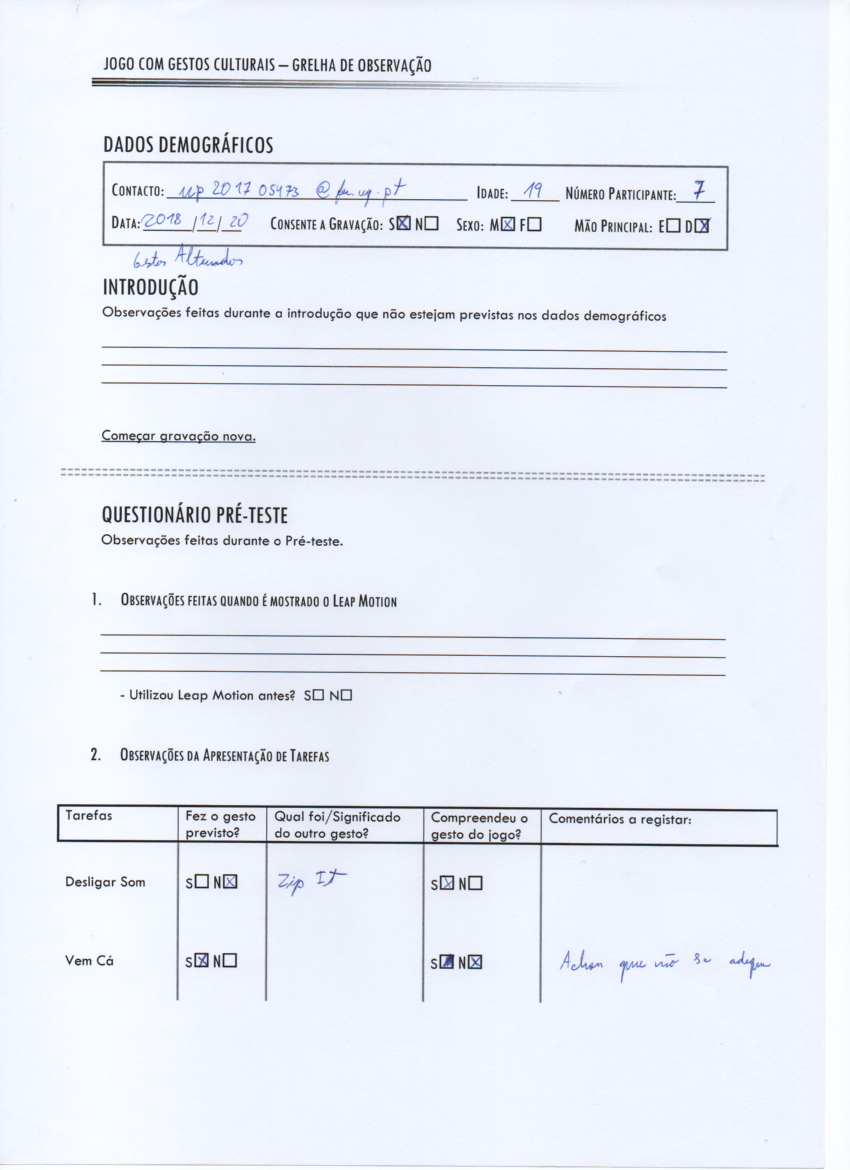 JOGO COM GESTOS CULTURAIS – GRELHA DE OBSERVAÇÃO
DADOS DEMOGRÁFICOS
CONTACTO: up 2017 05473 @ IDADE: 19 NÚMERO PARTICIPANTE: 7
DATA: 2018 /12/ 20 CONSENTE A GRAVAÇÃO: S☒ N☐ SEXO: M☒ F☐ MÃO PRINCIPAL: E☐ D☒
Gestos Alternados
INTRODUÇÃO
Observações feitas durante a introdução que não estejam previstas nos dados demográficos
Começar gravação nova.
QUESTIONÁRIO PRÉ-TESTE
Observações feitas durante o Pré-teste.
1. OBSERVAÇÕES FEITAS QUANDO É MOSTRADO O LEAP MOTION
- Utilizou Leap Motion antes? S☐ N☐
2. OBSERVAÇÕES DA APRESENTAÇÃO DE TAREFAS
Tarefas Fez o gesto Qual foi/Significado Compreendeu o Comentários a registar:
previsto? do outro gesto? gesto do jogo?
Desligar Som S☐ N☒ Zip It S☒ N☐
Vem Cá S☒ N☐ S■ N☒ Achou que não se adequa